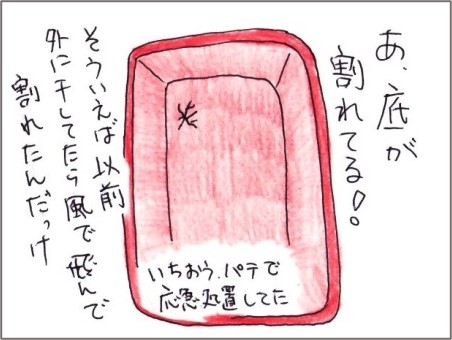 あ、底が
割れてる!
そういえば以前
外に干してたら風で飛んで
割れたんだっけ
いちおう、パテで
応急処置してた